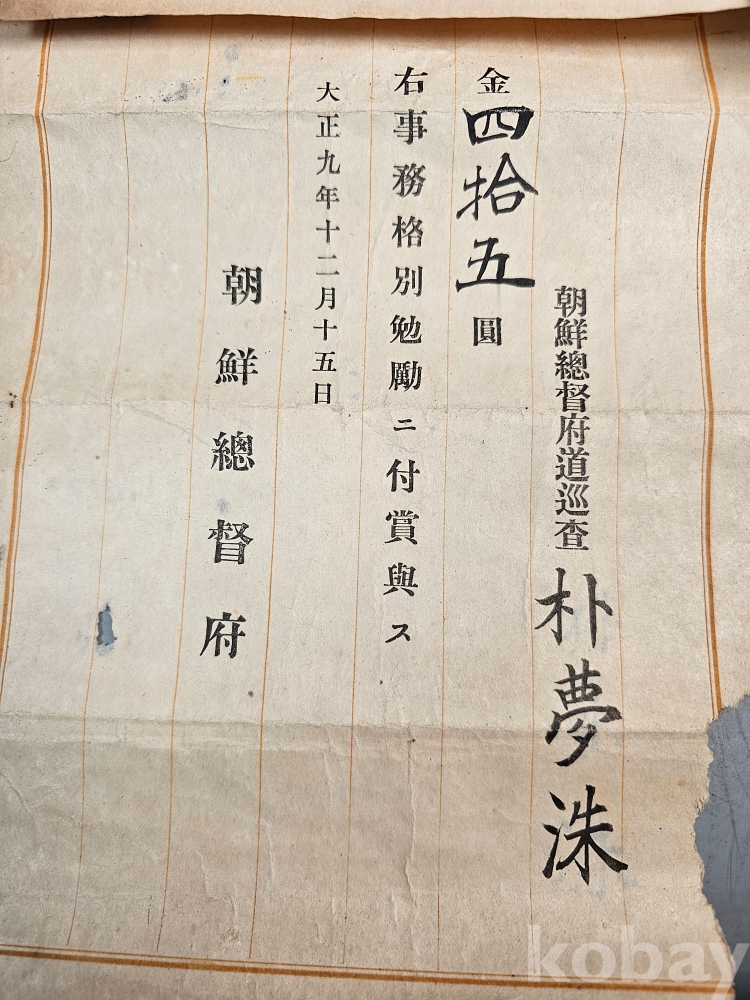 朝鮮總督府道巡査 朴夢洙
金四拾五圓
右事務格別勉勵ニ付賞與ス
大正九年十二月十五日
朝鮮總督府
kobay